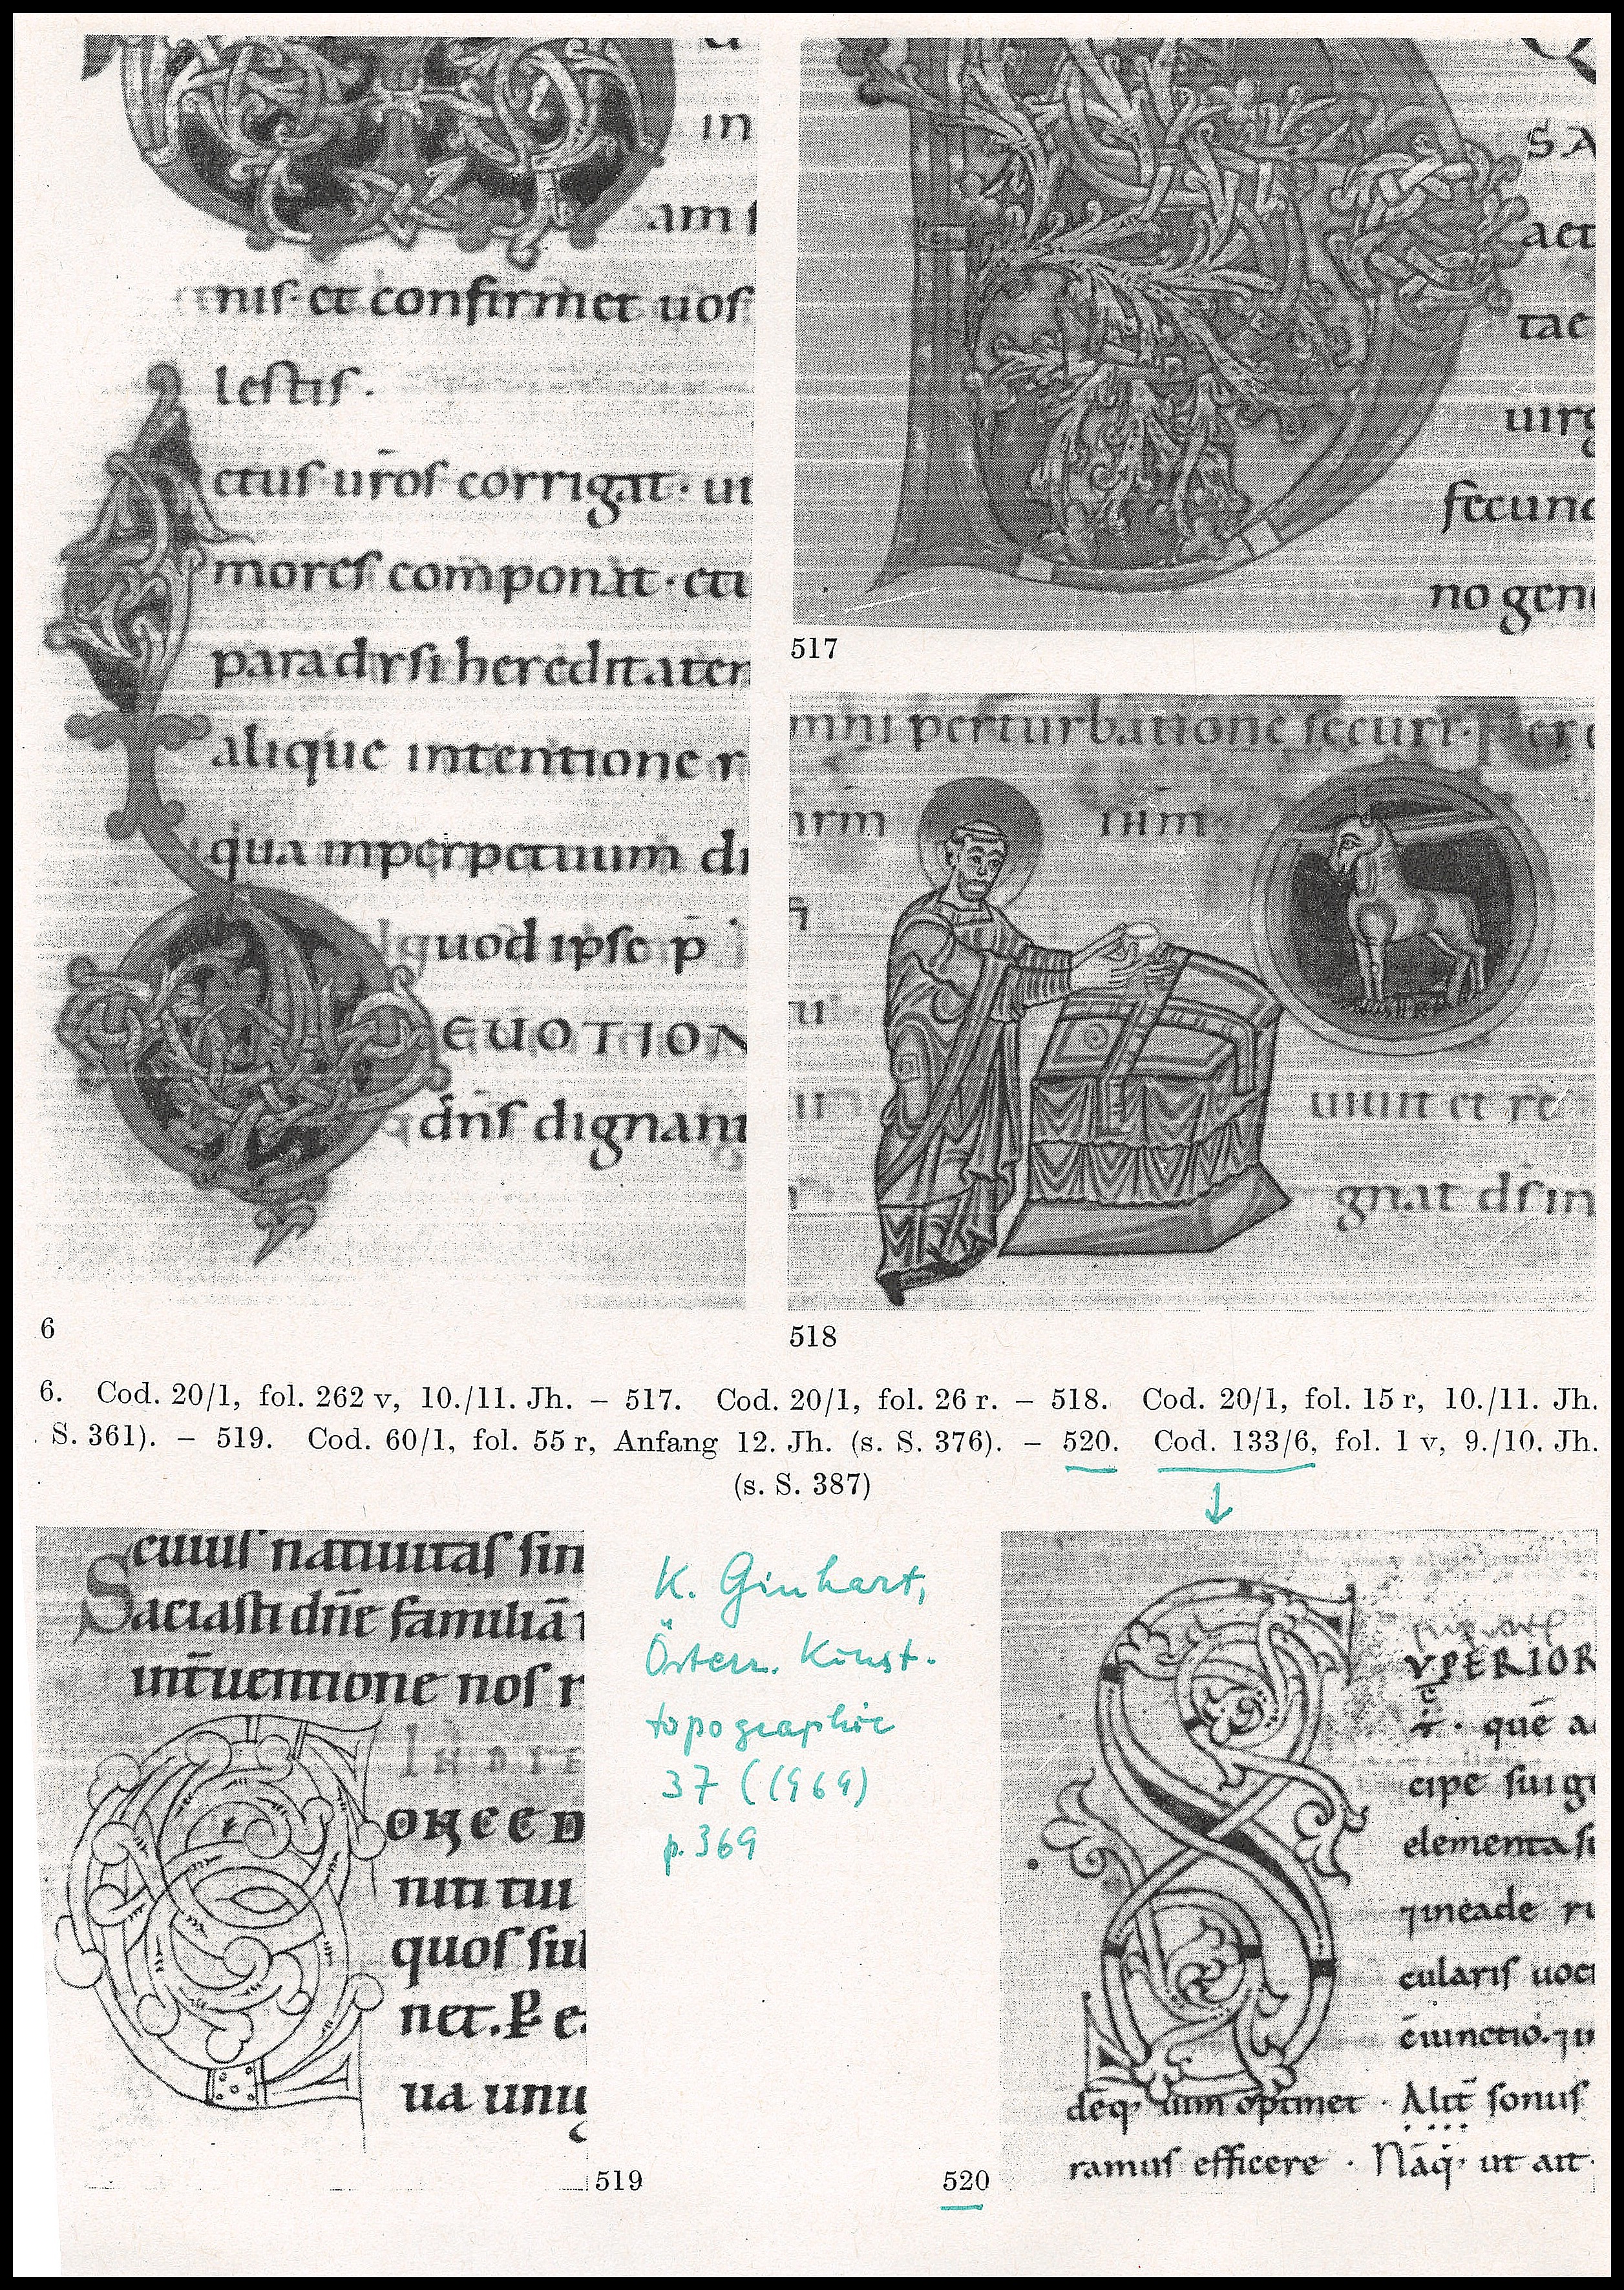 in
am
nis et confirmet uos
lestis.
ctus uros corrigat. ut
mores componat. etu
paradysi hereditatem
alique intentione r
qua inperpetuum di
quod ipse p̄
EUOTION
dñs dignant
6
SA
aet
tae
uirg
fecund
no gene
517
mni perturbatione securi. Per
ihm
uiuit et re
gnat ds in
518
6. Cod. 20/1, fol. 262 v, 10./11. Jh. – 517. Cod. 20/1, fol. 26 r. – 518. Cod. 20/1, fol. 15 r, 10./11. Jh.
S. 361). – 519. Cod. 60/1, fol. 55 r, Anfang 12. Jh. (s. S. 376). – 520. Cod. 133/6, fol. 1 v, 9./10. Jh.
(s. S. 387)
cuius natiuitas sin
Saciasti dñe familiā
int̄uentione nos r
IN DIE
ONCED
niti tui
quos sul
net. P e
ua unig
519
K. Ginhart,
Österr. Kunst-
topographie
37 (1969)
p. 369
UPERIOR
quē a
cipe sui g
elementa s
⁊ineade
cularis uoc
ēiunctio. ⁊
deq uim optinet · Alit sonus
ramus efficere · Nāq ut ait
520